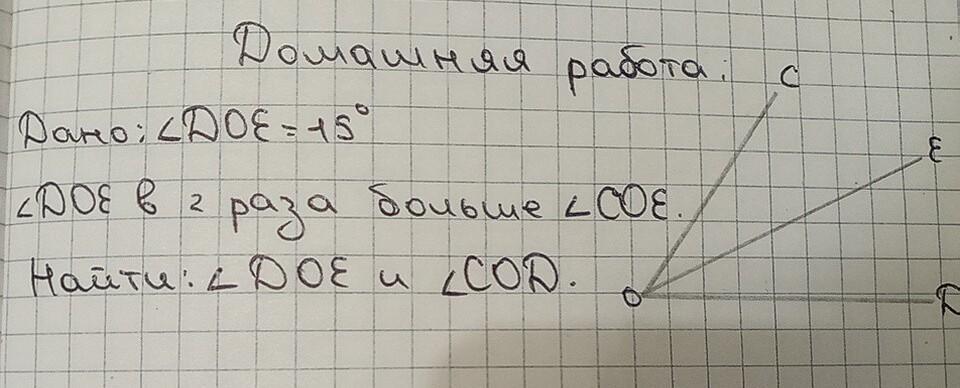 Домашняя работа:
Дано: ∠DOE = 15°
∠DOE в 2 раза больше ∠COE.
Найти: ∠DOE и ∠COD.
C
E
O
D